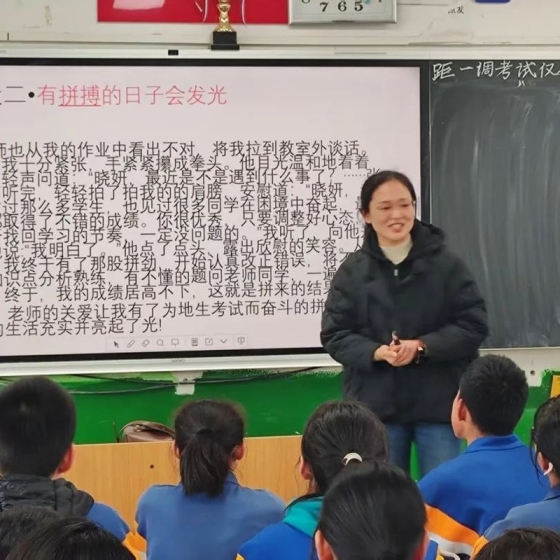 7 6 5
距一调考试仅
二•有拼搏的日子会发光
师也从我的作业中看出不对，将我拉到教室外谈话。
我十分紧张，手紧紧攥成拳头。他目光温和地看着
轻声问道：“晓妍，最近是不是遇到什么事了？……
听完，轻轻拍了拍我的的肩膀，安慰道：“晓妍，
过那么多学生，也见过很多同学在困境中奋起，最
取得了不错的成绩。你很优秀，只要调整好心态，
找回学习的节奏，一定没问题的。”我听了，向他
说“我明白了。”他点了点头，露出欣慰的笑容。
我终于有了那股拼劲，开始认真改正错误，将不
知识点分析熟练，有不懂的题问老师同学，一遍
终于，我的成绩居高不下，这就是拼来的结果
老师的关爱让我有了为地生考试而奋斗的拼
的生活充实并亮起了光!